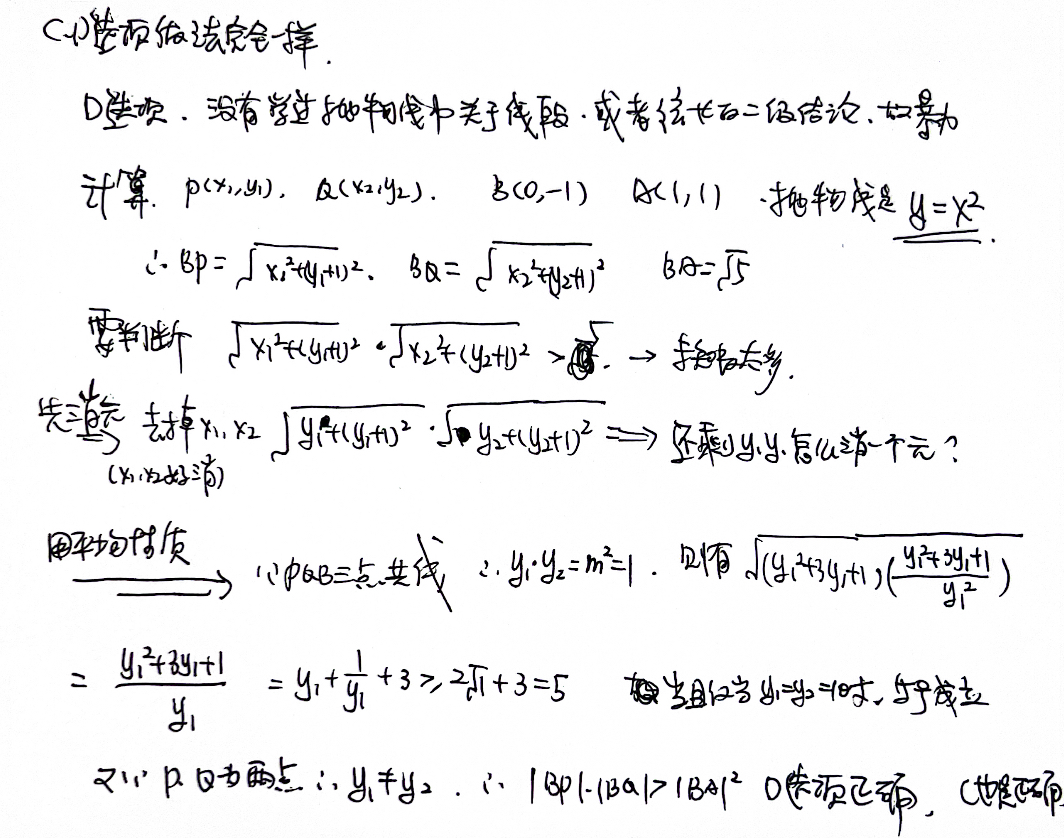 C、D选项做法完全一样.
D选项. 没有学过抛物线中关于线段.或者弦长的二级结论.故暴力
计算. P(x₁,y₁). Q(x₂,y₂). B(0,-1) A(1,1) .抛物线是 y=x²
∴ BP=√(x₁²+(y₁+1)²). BQ=√(x₂²+(y₂+1)²) BA=√5
要判断 √(x₁²+(y₁+1)²)·√(x₂²+(y₂+1)²) > → 未知数太多.
先消元 去掉x₁,x₂ √(y₁+(y₁+1)²)·√(y₂+(y₂+1)²) ⟹ 还剩y₁y₂怎么消一个元?
(x₁,x₂好消)
用平均性质 ⟶ ∵PQB三点共线 ∴ y₁·y₂=m²=1. 则有 √((y₁²+3y₁+1)((y₁²+3y₁+1)/y₁²))
= (y₁²+3y₁+1)/y₁ = y₁+1/y₁+3≥2√1+3=5 当且仅当y₁=y₂=1时,等号成立
又∵ P.Q为两点∴y₁≠y₂. ∴ |BP|·|BQ|>|BA|² D选项正确, C也是正确